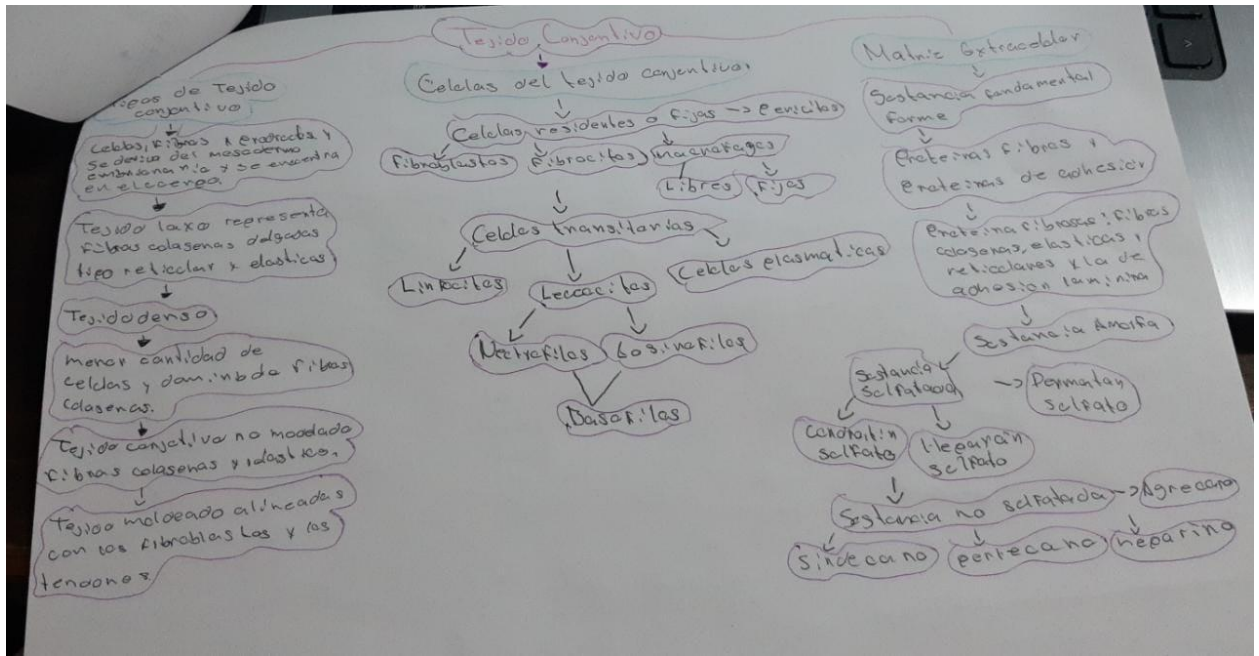 Tejido Conjentivo
Tejido
conjentivo
Celdas, Fibras y
se deriva del
embrionaria y se encentra
en el
Tejido laxo representa
fibras colagenas delgadas
tipo reticclar y elasticas
Tejido denso
menor cantidad de
celdas y fibras
colagenas.
Tejido no
fibras colagenas y
Tejido moldeado alineadas
con los fibroblastos y los
tendones
Celdas del tejido conjentivo.
Celdas residentes o fijas → Pericitos
Fibroblastos
Fibrocitos
macrofagos
Libres
Fijos
Celdas transitorias
Linfocitos
Leccocitos
Celdas plasmaticas
Nectrofilos
Eosinofilos
Basofilos
Matriz Extracelclar
Sestancia fundamental
forme
Proteinas fibras y
proteinas de adhesion
Proteina fibrosas: fibras
colagenas, elasticas,
reticclares y la de
adhesion laminina
Sestancia Amorfa
Sestancia
→ Dermatan
sclfato
sclfato
Heparan
sclfato
Sestancia no sclfatada → Agrecano
Sindecano
perlecano
heparina